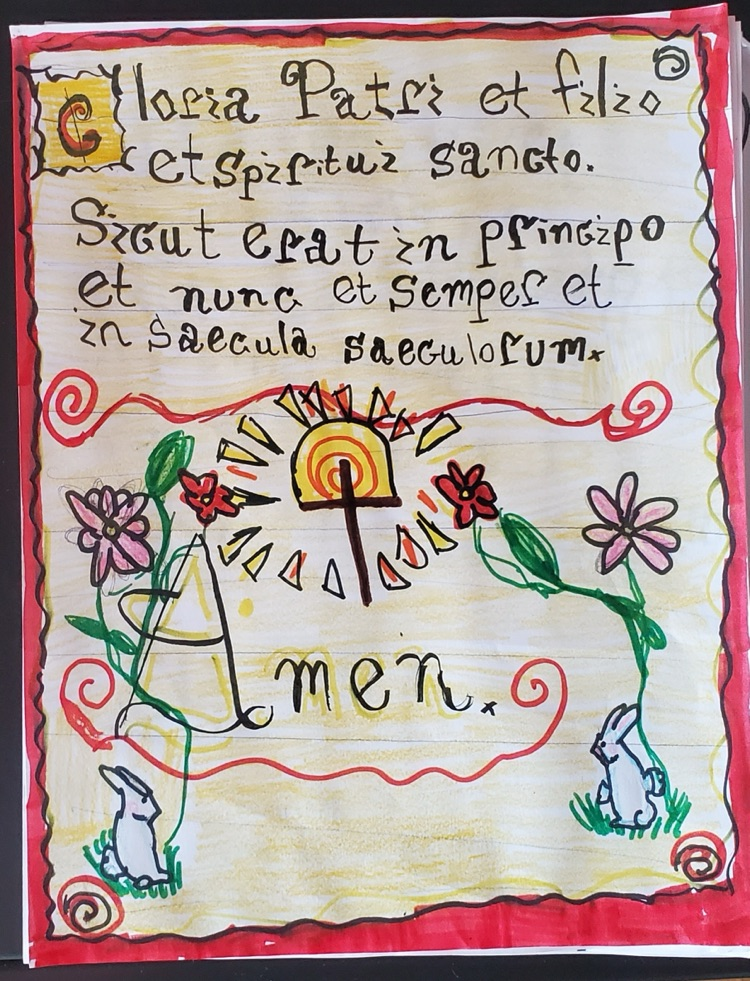 Gloria Patri et filio
et spiritui sancto.
Sicut erat in principo
et nunc et semper et
in saecula saeculorum.
Amen.